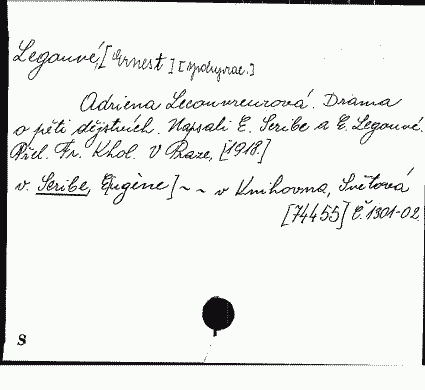 Legouvé, [Ernest] [spoluprac.]
Adriena Lecouvreurová. Drama
o pěti dějstvích. Napsali E. Scribe a E. Legouvé.
Přel. Fr. Khol. V Praze, [1918.]
v. Scribe, Eugène] ~ ~ v Knihovna, Světová
[74455] Č. 1301-02
S